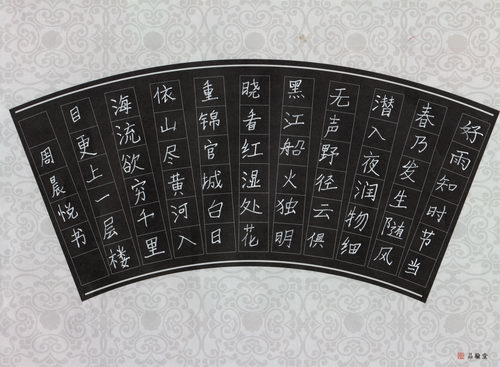 好雨知时节当
春乃发生随风
潜入夜润物细
无声野径云俱
黑江船火独明
晓看红湿处花
重锦官城白日
依山尽黄河入
海流欲穷千里
目更上一层楼
周晨悦书
品翰堂